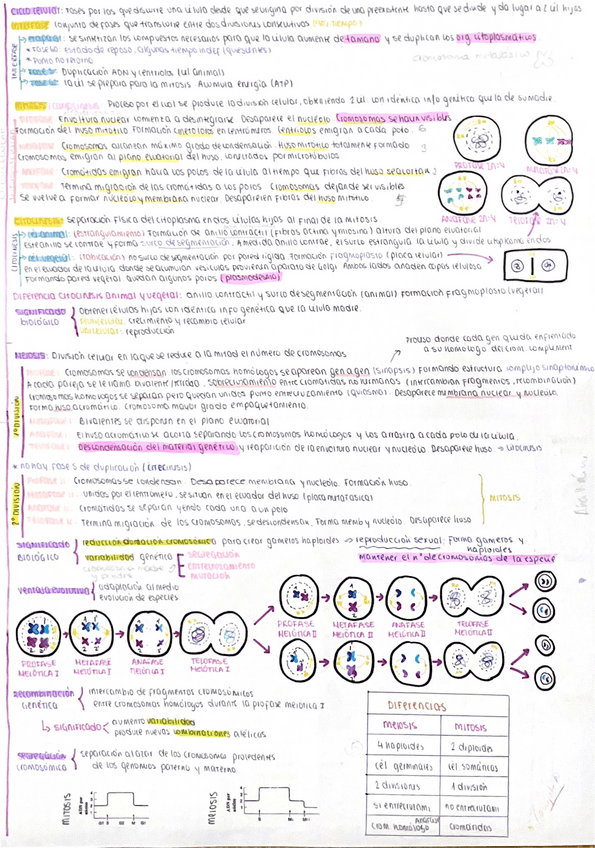 CICLO CELULAR: Fases por las que discurre una célula desde que surge por división de una preexistente hasta que se divide y da lugar a 2 cél hijas
INTERFASE conjunto de fases que transcurre entre dos divisiones consecutivas
INTERFASE
se sintetizan los compuestos necesarios para que la célula aumente de tamaño y se duplican los org citoplasmáticos
* Fase G0 Estado de reposo, algunas tiempo indef (quiescentes)
* Punto no retorno
Duplicación ADN y centriolos (cél animal)
La cél se prepara para la mitosis. Acumula energía (ATP)
MITOSIS Proceso por el cual se produce la división celular, obteniendo 2 cél con idéntica info genética que la de su madre
Envoltura nuclear comienza a desintegrarse. Desaparece el nucleolo. Cromosomas se hacen visibles
Formación del huso mitótico. Formación cinetocoros en centrómeros. Centriolos emigran a cada polo
Cromosomas alcanzan máximo grado de condensación. Huso mitótico totalmente formado
Cromosomas emigran al plano ecuatorial del huso, conectados por microtúbulos
Cromátidas emigran hacia los polos de la célula al tiempo que fibras del huso se acortan
Termina migración de las cromátidas a los polos. Cromosomas dejan de ser visibles
Se vuelve a formar nucleolo y membrana nuclear. Desaparecen fibras del huso mitótico
PROFASE 2n=4
METAFASE 2n=4
ANAFASE 2n=4
TELOFASE 2n=4
CITOCINESIS Separación física del citoplasma en dos células hijas al final de la mitosis
CITOCINESIS
cél animal: (estrangulamiento) Formación de anillo contráctil (fibras actina y miosina) altura del plano ecuatorial
Este anillo se contrae y forma surco de segmentación. A medida anillo contrae, el surco estrangula la célula y divide citoplasma en dos
cél vegetal: (tabicación) no surco de segmentación por pared rígida. Formación fragmoplasto (placa celular)
en el ecuador de la célula donde se acumulan vesículas provienen aparato de Golgi. Ambos lados añaden capas celulosa
formando pared vegetal. Quedan algunos poros (plasmodesmo)
DIFERENCIA CITOCINESIS ANIMAL Y VEGETAL: anillo contráctil y surco de segmentación (animal) Formación fragmoplasto (vegetal)
SIGNIFICADO BIOLÓGICO
Obtener células hijas con idéntica info genética que la célula madre.
Pluricelular: crecimiento y recambio celular
Unicelular: reproducción
MEIOSIS: División celular en la que se reduce a la mitad el número de cromosomas
Proceso donde cada gen queda enfrentado
a su homólogo del crom. complement
1ª DIVISIÓN
Cromosomas se condensan, los cromosomas homólogos se aparean gen a gen (sinapsis) formando estructura complejo sinaptonémico
A cada pareja se le llama bivalente/tétrada. Sobrecruzamiento entre cromátidas no hermanas (intercambian fragmentos, recombinación)
Cromosomas homólogos se separan pero quedan unidos punto entrecruzamiento (quiasma). Desaparece membrana nuclear y nucleolo.
Forma huso acromático. Cromosoma mayor grado empaquetamiento.
Bivalentes se disponen en el plano ecuatorial
El huso acromático se acorta separando los cromosomas homólogos y los arrastra a cada polo de la célula.
Descondensación del material genético y reaparición de la envoltura nuclear y nucleolo. Desaparece huso → citocinesis
* no hay fase S de duplicación (citocinesis)
2ª DIVISIÓN
Cromosomas se condensan. Desaparece membrana y nucleolo. Formación huso
Unidos por el centrómero, se sitúan en el ecuador del huso (placa metafásica)
Cromátidas se separan yendo cada una a un polo
Termina migración de los cromosomas, se descondensan. Forma memb y nucleolo. Desaparece huso
MITOSIS
SIGNIFICADO BIOLÓGICO
reducción dotación cromosómica para crear gametos haploides → reproducción sexual: forma gametos y haploides
Mantener el nº de cromosomas de la especie
variabilidad genética
segregación
entrecruzamiento
mutación
VENTAJA EVOLUTIVA
adaptación al medio
evolución de especies
PROFASE MEIÓTICA I
METAFASE MEIÓTICA I
ANAFASE MEIÓTICA I
TELOFASE MEIÓTICA I
PROFASE MEIÓTICA II
METAFASE MEIÓTICA II
ANAFASE MEIÓTICA II
TELOFASE MEIÓTICA II
RECOMBINACIÓN GENÉTICA
intercambio de fragmentos cromosómicos
entre cromosomas homólogos durante la profase meiótica I
↳ SIGNIFICADO
aumento variabilidad
produce nuevas combinaciones alélicas
SEGREGACIÓN CROMOSÓMICA
separación al azar de los cromosomas procedentes
de los genomas paterno y materno
MITOSIS
MEIOSIS
DIFERENCIAS
MEIOSIS MITOSIS
4 haploides 2 diploides
cél germinales cél somáticas
2 divisiones 1 división
si entrecruzami no entrecruzami
anafase
crom homólogo cromátidas